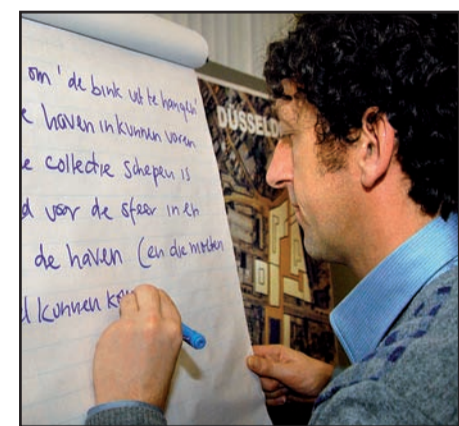 om 'de bink uit te hangen'
e haven in kunnen varen
e collectie schepen is
d voor de sfeer in en
de haven (en die moeten
kunnen
DÜSSELD